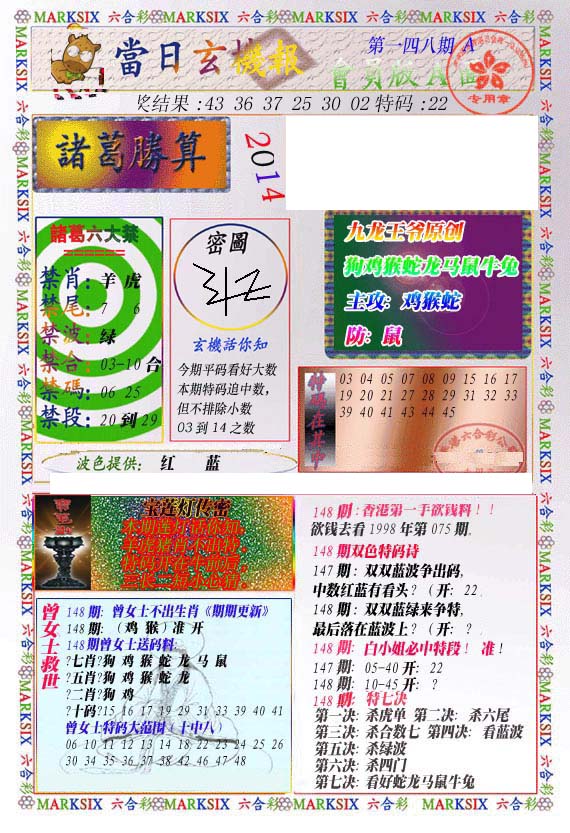 MARKSIX 六合彩 MARKSIX 六合彩 MARKSIX 六合彩 MARKSIX 六合彩
當日玄機報
第一四八期 A
會員版 A 面
专用章
奖结果 :43 36 37 25 30 02 特码 :22
諸葛勝算
2014
諸葛六大禁
禁肖：羊 虎
禁尾：7 6
禁波：绿
禁合：03-10 合
禁碼：06 25
禁段：20 到 29
密圖
玄機活你知
今期平码看好大数
本期特码追中数，
但不排除小数
03 到 14 之数
九龙王爷原创
狗鸡猴蛇龙马鼠牛兔
主攻：鸡猴蛇
防：鼠
特码在其中
03 04 05 07 08 09 15 16 17
19 20 21 27 28 29 31 32 33
39 40 41 43 44 45
波色提供： 红 蓝
宝莲灯传密
本期莲灯话你知，
曾女士救世
148 期：曾女士不出生肖《期期更新》
148 期：（鸡 猴）准 开
148期曾女士送码料
?七肖?狗 鸡 猴 蛇 龙 马 鼠
?五肖?狗 鸡 猴 蛇 龙
?二肖?狗 鸡
?十码?15 16 17 19 29 31 33 39 40 41
曾女士特码大范围﹝十中八﹞
06 10 11 12 13 14 18 22 23 24 25 26
30 34 35 36 37 38 42 46 47 48
148 期：香港第一手欲钱料！！
欲钱去看 1998 年第 075 期,
148 期双色特码诗
147 期：双双蓝波争出码,
中数红蓝有看头？（开：22.
148 期：双双蓝绿来争特,
最后落在蓝波上？（开：？.
148 期：白小姐必中特段！ 准！
147 期：05-40 开：22
148 期：10-45 开：？
148 期： 特七决
第一决：杀虎单 第二决：杀六尾
第三决：杀合数七 第四决：看蓝波
第五决：杀绿波
第六决：杀四门
第七决：看好蛇龙马鼠牛兔
MARKSIX 六合彩 MARKSIX 六合彩 MARKSIX 六合彩 MARKSIX 六合彩